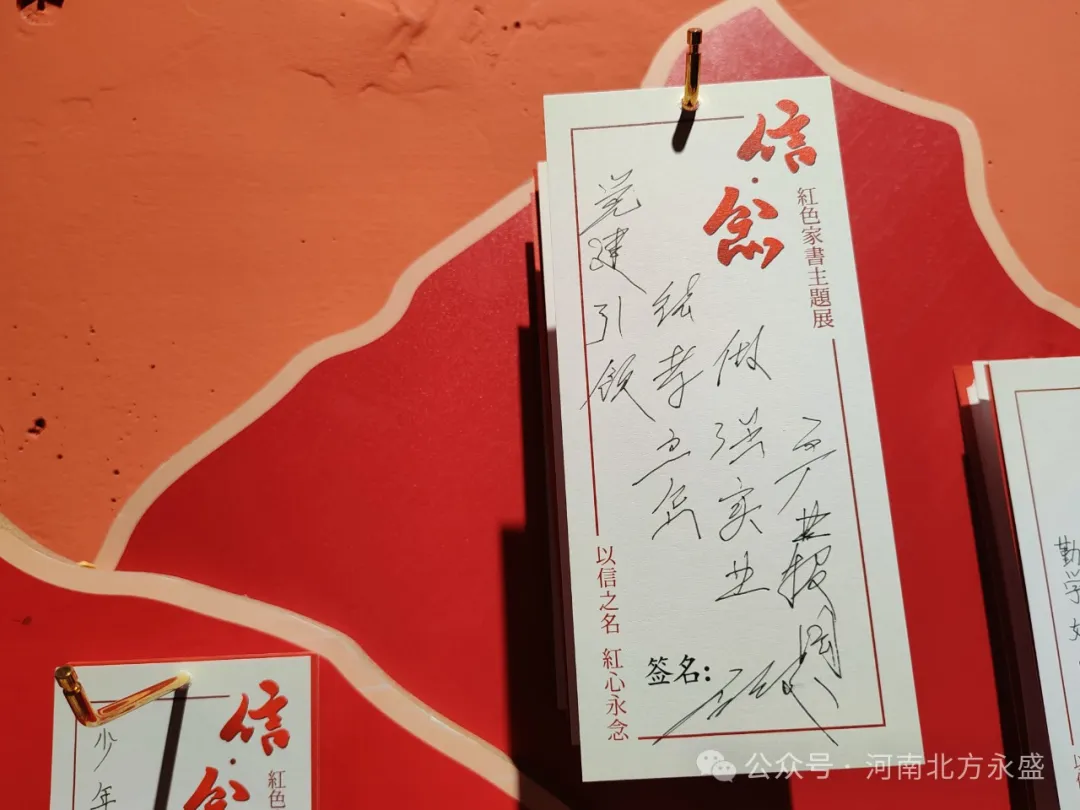 信·念
紅色家書主題展
党建引领
做强实业
产业报国
签名：
以信之名 紅心永念
信
紅色
少年
勤学
公众号·河南北方永盛